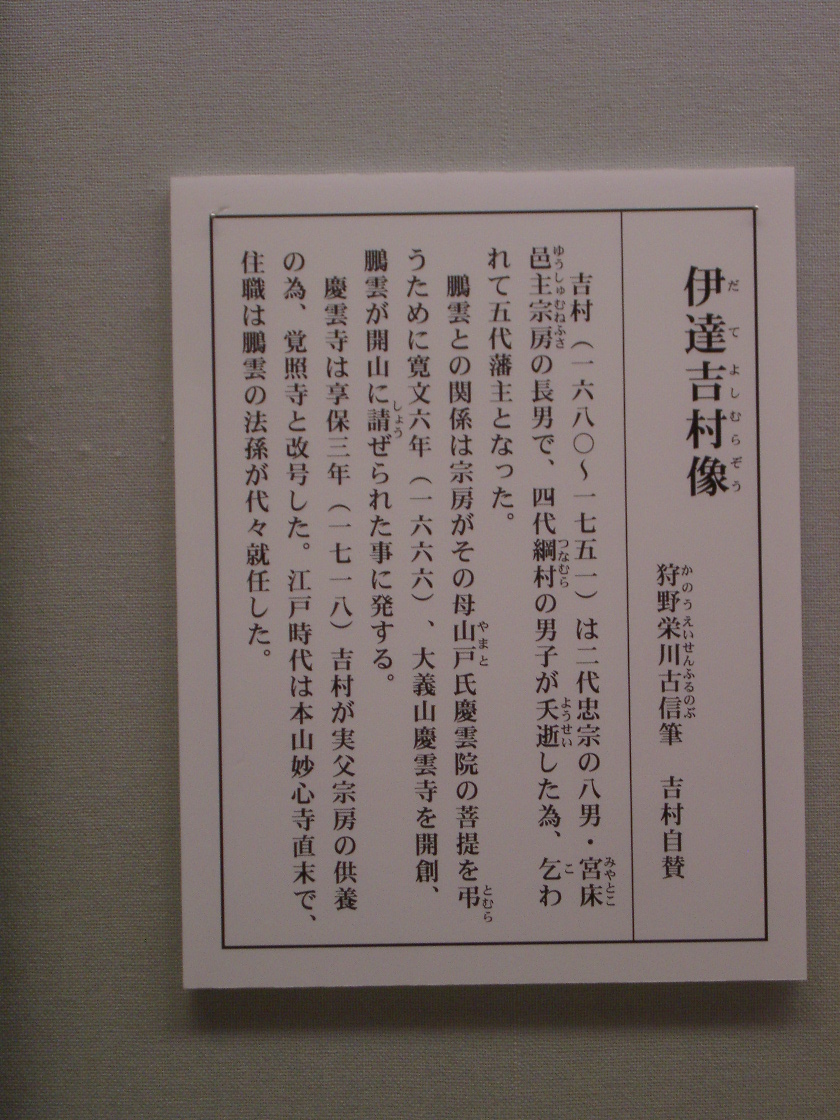 伊達吉村像
だてよしむらぞう
狩野栄川古信筆　吉村自賛
かのうえいせんふるのぶ
吉村（一六八〇～一七五一）は二代忠宗の八男・宮床
みやとこ
邑主宗房の長男で、四代綱村の男子が夭逝した為、乞わ
ゆうしゅむねふさ　つなむら　ようせい　こ
れて五代藩主となった。
鵬雲との関係は宗房がその母山戸氏慶雲院の菩提を弔
やまと　とむら
うために寛文六年（一六六六）、大義山慶雲寺を開創、
鵬雲が開山に請ぜられた事に発する。
しょう
慶雲寺は享保三年（一七一八）吉村が実父宗房の供養
の為、覚照寺と改号した。江戸時代は本山妙心寺直末で、
住職は鵬雲の法孫が代々就任した。